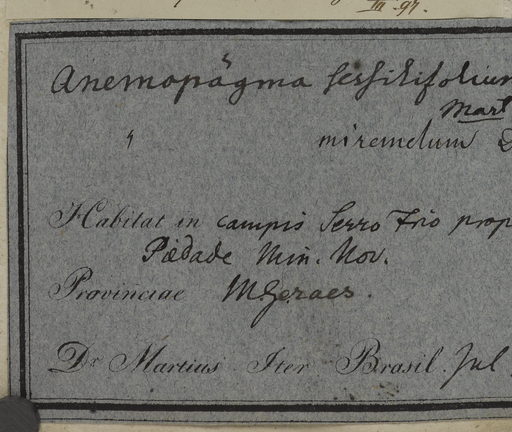 III. 97.
Anemopägma sessilifolium
Mart
" mirandum D
Habitat in campis Serro Frio prop
Piedade Min. Nov.
Provinciae M.Geraes.
Dr Martius Iter Brasil. Jul